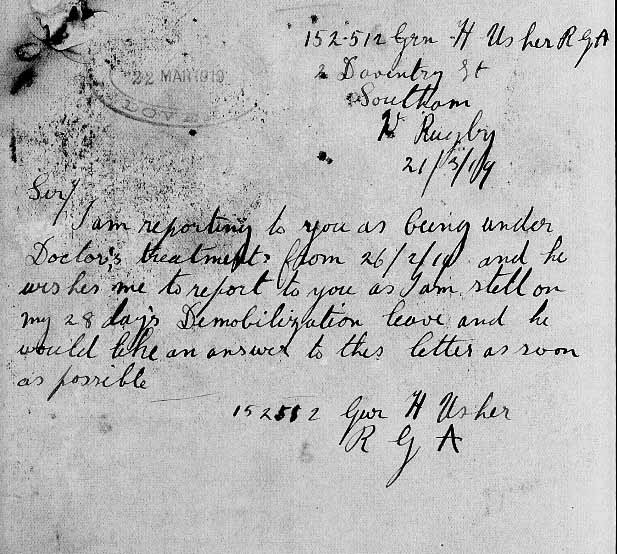 152512 Gnr H Usher R G A
2 Daventry St
Southam
Nr Rugby
21/3/19
22 MAR 1919
Sir/
I am reporting to you as being under
Doctor's treatment from 26/2/19 and he
wishes me to report to you as I am still on
my 28 days Demobilization leave and he
would like an answer to this letter as soon
as possible
152512 Gnr H Usher
R G A